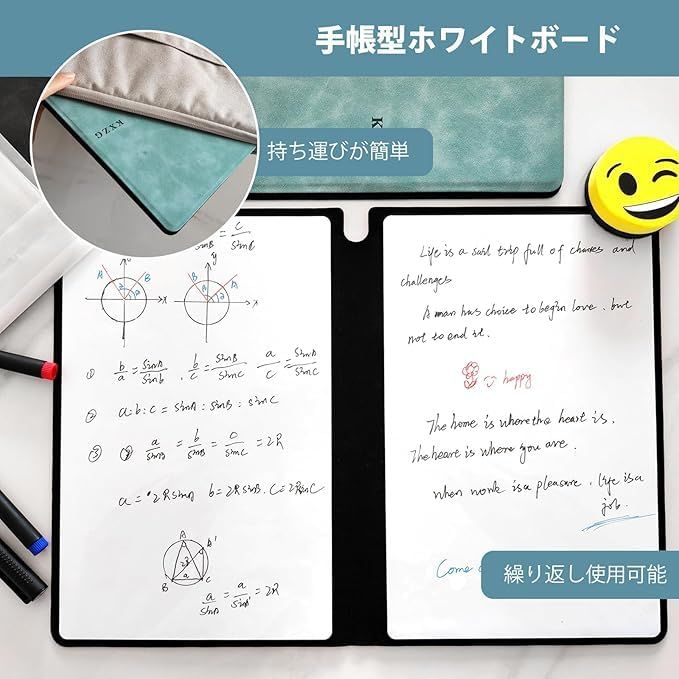 手帳型ホワイトボード
持ち運びが簡単
KXZG
K
sinB = c/sinC
y
A B
x
B A
x
① b/a = sinA/sinb . b/c = sinB/sinC a/c = sinA/sinC
② a:b:c = sinA : sinB : sinC
③ a/sinB = b/sinB = 0/sinC = 2R
a = 2RsinA b = 2RsinB . C = 2RsinC
A A'
2R
B a C
a/sinA = a/sinA' = 2R
Life is a sail trip full of chances and
challenges
A man has choice to begin love . but
not to end it.
happy
The home is where the heart is.
The heart is where you are.
when work is a pleasure . life is a
job.
Come
繰り返し使用可能